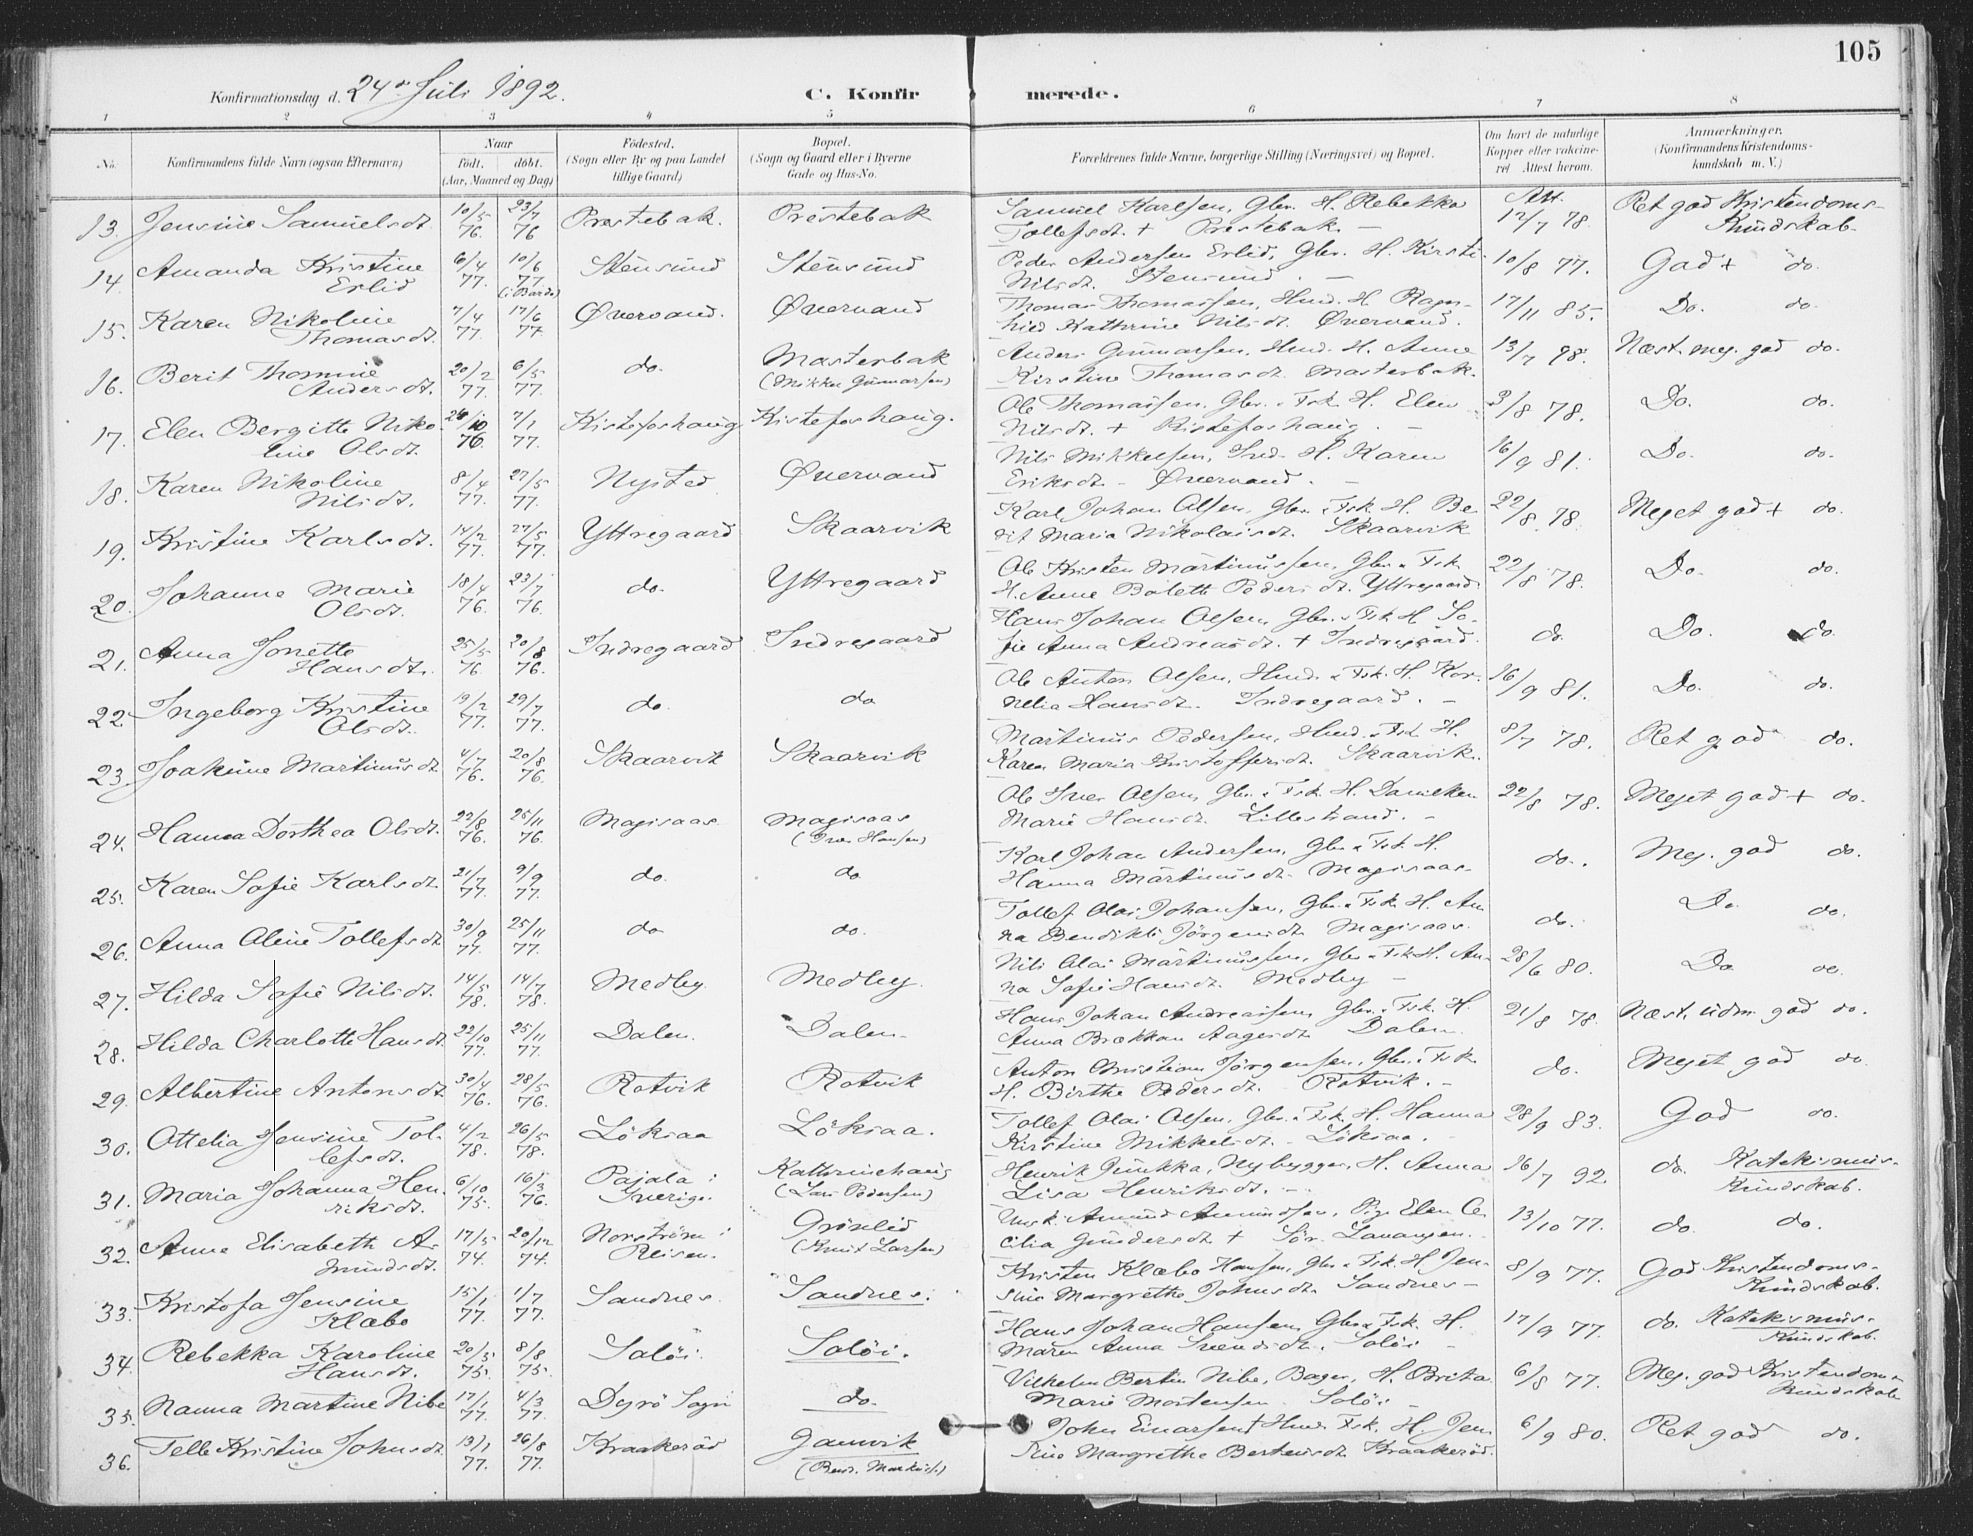 105
Konfirmationsdag d. 24de Juli 1892.
C. Konfirmerede.
1 2 3 4 5 6 7 8
No. Konfirmandens fulde Navn (ogsaa Efternavn) Naar født, døbt. (Aar, Maaned og Dag) Fødested. (Sogn eller By og paa Landet tillige Gaard) Bopæl. (Sogn og Gaard eller i Byerne Gade og Hus-No. Forældrenes fulde Navne, borgerlige Stilling (Næringsvei) og Bopæl. Om havt de naturlige Kopper eller vakcineret Attest herom. Anmærkninger. (Konfirmandens Kristendomskundskab m. V.)
13. Jensine Samuelsdt. 10/5 76 23/7 76 Prestebak. Prestebak Samuel Karlsen, Gbr. H. Rebekka Tollefsdt. + Prestebak. Att. 12/7 78. Ret god Kristendoms-Kundskab.
14. Amanda Kristine Erlid 6/4 77. 10/6 77. (i Bardo) Stensund Stensund Peder Andersen Erlid, Gbr. H. Kirsti Nilsdt. Stensund. 10/8 77. God + do.
15. Karen Nikoline Thomasdt. 7/4 77. 17/6 77. Øvervand. Øvervand Thomas Thomassen, Hmd. H. Ragnhild Kathrine Nilsdt. Øvervand. 17/11 85. Do. do.
16. Berit Thomine Andersdt. 20/2 77. 6/5 77. do. Masterbak (Mikkel Gunnarsen) Anders Gunnarsen, Hmd. H. Anne Kirstine Thomasdt. Masterbak. 13/7 98. Næst. meg. god do.
17. Elen Bergitte Nikoline Olsdt. 26/10 76. 7/1 77. Kistefoshaug Kistefoshaug. Ole Thomassen, Gbr. & Fsk. H. Elen Nilsdt. + Kistefoshaug. 3/8 78. Do. do.
18. Karen Nikoline Nilsdt. 8/4 77. 27/5 77. Nysted Øvervand Nils Mikkelsen, Ind. H. Karen Eriksdt. Øvervand. 16/9 81. Do. do.
19. Kristine Karlsdt. 14/2 77. 27/5 77. Yttregaard Skaarvik Karl Johan Olsen, Gbr. & Fsk. H. Berit Maria Nikolaisdt. Skaarvik 22/8 78. Meget god + do.
20. Johanne Marie Olsdt. 18/4 76. 23/7 76. do. Yttregaard Ole Kristen Martinussen, Gbr. & Fsk. H. Anne Bolette Pedersdt. Yttregaard 22/8 78. Do. do.
21. Anna Jonette Hansdt. 25/5 76 20/8 76. Indregaard Indregaard Hans Johan Olsen, Gbr. & Fsk. H. Sofie Anna Andreasdt. + Indregaard. do. Do. do.
22. Ingeborg Kristine Olsdt. 19/2 77. 29/7 77. do. do Ole Anton Olsen, Hmd. & Fsk. H. Kornelia Hansdt. Indregaard. 16/9 81. Do. do.
23. Joakime Martinusdt 4/7 76. 20/8 76. Skaarvik Skaarvik Martinus Pedersen, Hmd. & Fsk. H. Karen Maria Kristoffersdt. Skaarvik. 8/7 78. Ret god do.
24. Hanna Dorthea Olsdt. 22/8 76. 25/11 76. Magisaas Magisaas (Iver Hansen) Ole Iver Olsen, Gbr. & Fsk. H. Danielken Marie Hansdt. Lillestrand. 22/8 78. Meget god + do.
25. Karen Sofie Karlsdt. 21/7 77. 9/9 77. do. do Karl Johan Andersen, Gbr. & Fsk. H. Hanna Martinusdt. Magisaas. do. Meg. god do.
26. Anna Oline Tollefsdt 30/9 77. 25/11 77. do do. Tollef Olai Johansen, Gbr. & Fsk. H. Anna Bendikte Jørgensdt. Magisaas. do. Do do.
27. Hilda Sofie Nilsdt. 14/5 78. 14/7 78. Medby. Medby. Nils Olai Martinussen, Gbr. & Fsk. H. Anna Sofie Hansdt. Medby 28/6 80. Do do.
28. Hilda Charlotte Hansdt 22/10 77. 25/11 77. Dalen. Dalen. Hans Johan Andreassen, Gbr. & Fsk. H. Anna Brækkan Aagesdt. Dalen 21/8 78. Næst. udm. god do.
29. Albertine Antonsdt. 30/4 76. 28/5 76. Rotvik Rotvik Anton Christian Jørgensen, Gbr. & Fsk. H. Birthe Pedersdt. Rotvik. do. Meget god do
30. Ottelia Jensine Tollefsdt. 4/2 78. 26/5 78. Löksaa Löksaa. Tollef Olai Olsen, Gbr. & Fsk. H. Hanna Kirstine Mikkelsdt. Löksaa. 28/9 83. God do.
31. Maria Johanna Henriksdt. 6/10 75. 16/3 76. Pajala i Sverige. Kathrinehaug (Lars Pedersen) Henrik Junkka, Nybygger, H. Anna Lisa Henriksdt. 16/7 92. do. Katekismus-Kundskab.
32. Anne Elisabeth Amundsdt. 17/5 74. 20/12 74. Norström i Reisen. Grönlid (Knut Larsen) Ungk. Amund Amundsen, Pige Elen Cecilia Gundersdt + Sör. Lavangen. 13/10 77. do. do.
33. Kristofa Jensine Klæbo 15/1 77. 1/7 77. Sandnes. Sandnes. Kristen Klæbo Hansen, Gbr. & Fsk. H. Jensine Margrethe Johnsdt. Sandnes 8/9 77. God Kristendoms-Kundskab.
34. Rebekka Karoline Hansdt. 20/5 75. 8/8 75. Solöi. Solöi. Hans Johan Hansen, Gbr. & Fsk. H. Maren Anna Svendsdt. Solöi 17/9 77. do. Katekismus-Kundskab.
35. Nanna Martine Nibe 17/1 77. 4/3 77. Dyrö Sogn do. Vilhelm Bertin Nibe, Bager, H. Brita Marie Mortensen. Solöi 6/8 77. Meg. god Kristendoms-Kundskab
36. Telle Kristine Johnsdt 13/1 77. 26/8 77. Kraakeröd Gamvik (Bend. Markusf.) John Einarsen + Hmd. Fsk. H. Jensine Margrethe Berteusdt. Kraakeröd. 6/9 80. Ret god do.